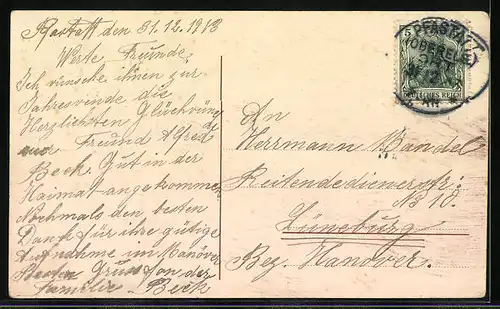 Rastatt den 31.12.1913
Werte Freunde,
Ich wünsche ihnen zur
Jahreswende die
Herzlichsten Glückwüng
Freund Alfred
Beck. Gut in der
Haimat angekommen
Nochmals den besten
Dank für ihre gütige
Aufnahme im Manöver
Besten Gruss von der
Familie Beck
An
Herrmann Mandel
Reitendedienerstr:
No 10.
Lüneburg
Bez. Hanover.
PFASTATT
(OBERELS)
DEUTSCHES REICH